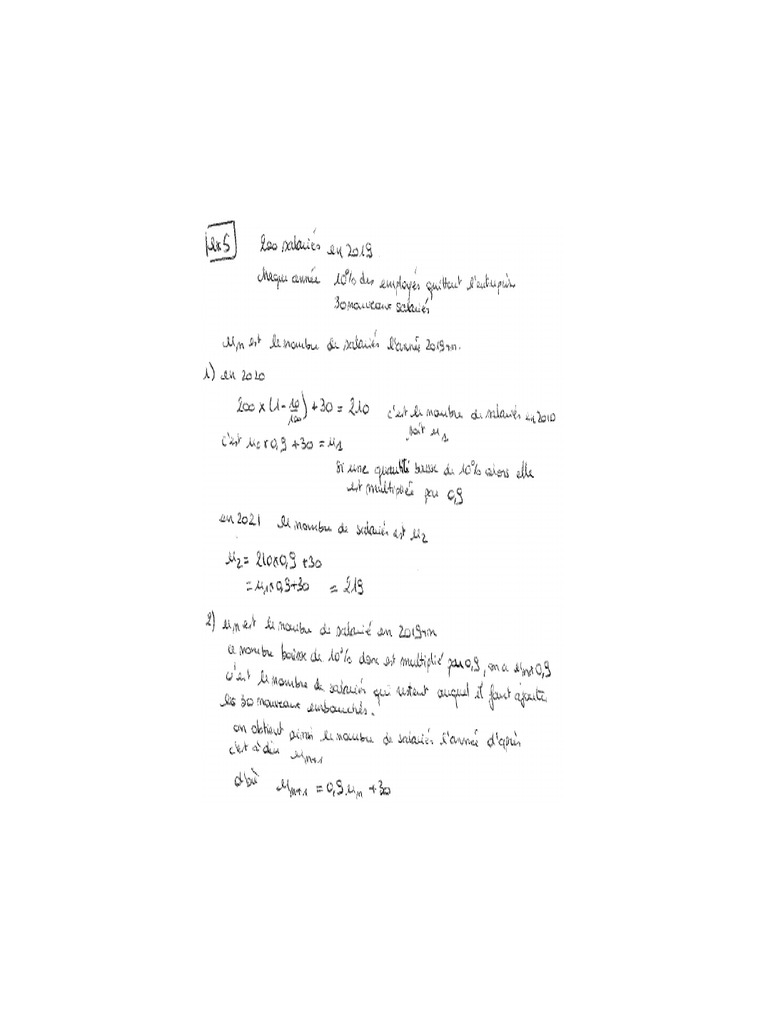 Ex 5 200 salariés en 2019
chaque année 10% des employés quittent l'entreprise
30 nouveaux salariés
un est le nombre de salariés l'année 2019+n.
1) en 2020
200 × (1 - 10/100) + 30 = 210 c'est le nombre de salariés en 2020
soit u1
c'est u0 × 0,9 + 30 = u1
si une quantité baisse de 10% alors elle
est multipliée par 0,9
en 2021 le nombre de salariés est u2
u2 = 210 × 0,9 + 30
= u1 × 0,9 + 30 = 219
2) un est le nombre de salarié en 2019+n
ce nombre baisse de 10% donc est multiplié par 0,9, on a un × 0,9
c'est le nombre de salariés qui restent auquel il faut ajouter
les 30 nouveaux embauchés.
on obtient ainsi le nombre de salariés l'année d'après
c'est à dire un+1
d'où un+1 = 0,9 un + 30